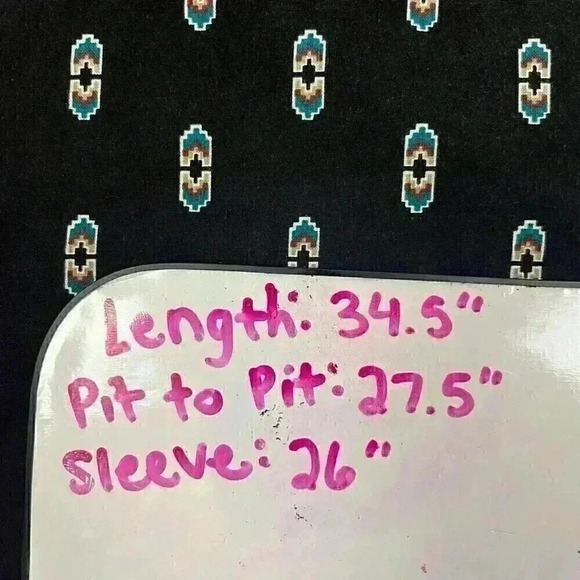 Length: 34.5"
Pit to Pit: 27.5"
Sleeve: 26"